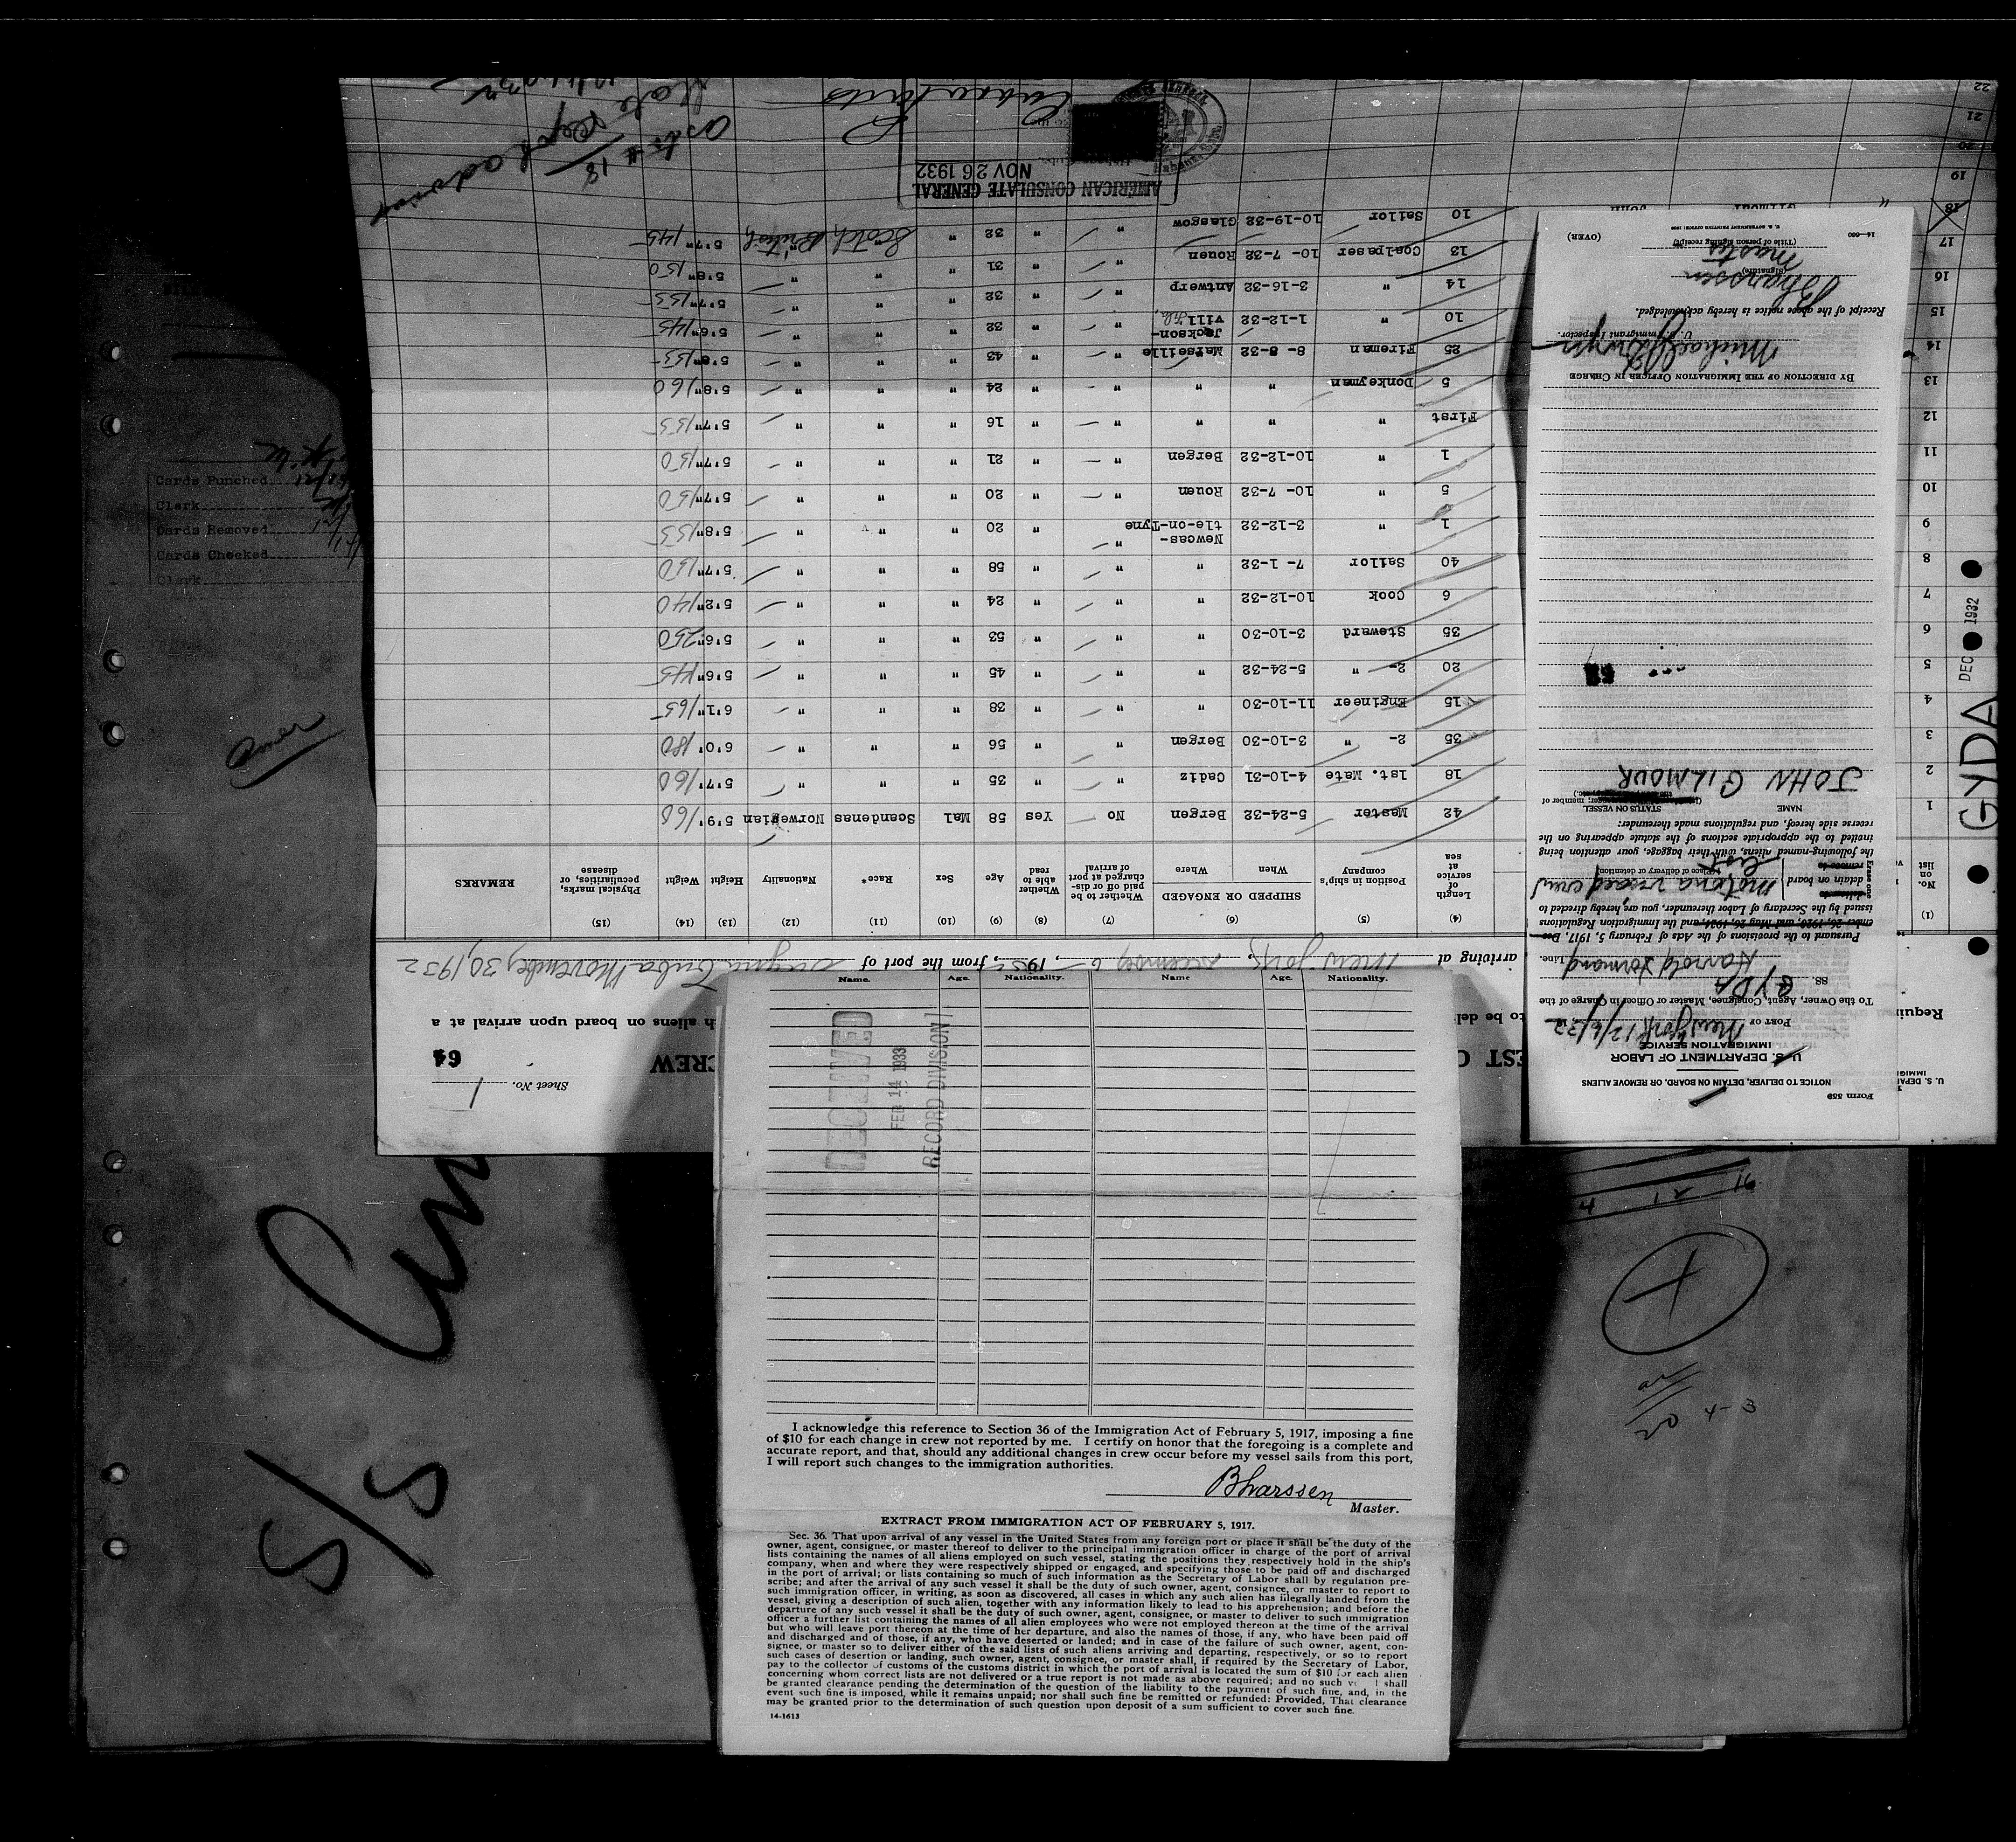 Cards Punched
Clerk
Cards Removed
Cards Checked
Clerk
amer
S/S
Form 559
NOTICE TO DELIVER, DETAIN ON BOARD, OR REMOVE ALIENS
U. S. DEPARTMENT OF LABOR
IMMIGRATION SERVICE
PORT OF New York 12/6/32
To the Owner, Agent, Consignee, Master or Officer in Charge of the
SS. GYDA
Line.
Pursuant to the provisions of the Acts of February 5, 1917,
ember 26, 1920, and May 26, 1924, and the Immigration Regulations
issued by the Secretary of Labor thereunder, you are hereby directed to
detain on board
remove to
(Place of delivery or detention)
the following-named aliens, with their baggage, your attention being
invited to the appropriate sections of the statute appearing on the
reverse side hereof, and regulations made thereunder:
NAME STATUS ON VESSEL
JOHN GILMOUR
BY DIRECTION OF THE IMMIGRATION OFFICER IN CHARGE
U. S. Immigrant Inspector.
Receipt of the above notice is hereby acknowledged.
(Signature)
Master
(Title of person signing receipt)
(OVER)
Sheet No. 1
64
arriving at New York, December 6, 193, from the port of Cuba November 30, 1932
(1) (4) (5) (6) (7) (8) (9) (10) (11) (12) (13) (14) (15)
No. on list
Length of service at sea
Position in ship's company
SHIPPED OR ENGAGED
When Where
Whether to be paid off or discharged at port of arrival
Whether able to read
Age
Sex
Race*
Nationality
Height
Weight
Physical marks, peculiarities, or disease
REMARKS
1 42 Master 5-24-32 Bergen No Yes 58 Mal Scandenas Norwegian 5'9" 160
2 18 1st. Mate 4-10-31 Cadiz " " 35 " " " 5'7" 160
3 35 2- " 3-10-30 Bergen " " 56 " " " 6'0" 180
4 15 Engineer 11-10-30 " " " 38 " " " 6'1" 165
5 20 2- " 5-24-32 " " " 45 " " " 5'6" 145
6 35 Steward 3-10-30 " " " 53 " " " 5'6" 250
7 6 Cook 10-12-32 " " " 24 " " " 5'2" 140
8 40 Sailor 7- 1-32 " " " 58 " " " 5'7" 150
9 1 " 3-12-32 Newcas-tle-on-Tyne " " 20 " " " 5'8" 155
10 5 " 10- 7-32 Rouen " " 20 " " " 5'7" 150
11 1 " 10-12-32 Bergen " " 21 " " " 5'7" 150
12 First " " " " " 16 " " " 5'7" 155
13 5 Donkeyman " " " " 24 " " " 5'8" 160
14 25 Fireman 8- 8-32 Marseille " " 43 " " " 5'8" 155
15 10 " 1-12-32 Jackson-vill Fla. " " 32 " " " 5'6" 145
16 14 " 3-16-32 Antwerp " " 32 " " " 5'7" 155
17 13 Coalpaser 10- 7-32 Rouen " " 31 " " " 5'8" 150
18 10 Sailor 10-19-32 Glasgow " " 32 " Scotch British 5'7" 145
19
20
21
22
AMERICAN CONSULATE GENERAL
NOV 26 1932
GYDA
DEC 1932
Name. Age. Nationality. Name Age. Nationality.
RECEIVED
FEB 14 1933
RECORD DIVISION
I acknowledge this reference to Section 36 of the Immigration Act of February 5, 1917, imposing a fine
of $10 for each change in crew not reported by me. I certify on honor that the foregoing is a complete and
accurate report, and that, should any additional changes in crew occur before my vessel sails from this port,
I will report such changes to the immigration authorities.
Master.
EXTRACT FROM IMMIGRATION ACT OF FEBRUARY 5, 1917.
Sec. 36. That upon arrival of any vessel in the United States from any foreign port or place it shall be the duty of the
owner, agent, consignee, or master thereof to deliver to the principal immigration officer in charge of the port of arrival
lists containing the names of all aliens employed on such vessel, stating the positions they respectively hold in the ship's
company, when and where they were respectively shipped or engaged, and specifying those to be paid off and discharged
in the port of arrival; or lists containing so much of such information as the Secretary of Labor shall by regulation pre-
scribe; and after the arrival of any such vessel it shall be the duty of such owner, agent, consignee, or master to report to
such immigration officer, in writing, as soon as discovered, all cases in which any such alien has illegally landed from the
vessel, giving a description of such alien, together with any information likely to lead to his apprehension; and before the
departure of any such vessel it shall be the duty of such owner, agent, consignee, or master to deliver to such immigration
officer a further list containing the names of all alien employees who were not employed thereon at the time of the arrival
but who will leave port thereon at the time of her departure, and also the names of those, if any, who have been paid off
and discharged and of those, if any, who have deserted or landed; and in case of the failure of such owner, agent, con-
signee, or master so to deliver either of the said lists of such aliens arriving and departing, respectively, or so to report
such cases of desertion or landing, such owner, agent, consignee, or master shall, if required by the Secretary of Labor,
pay to the collector of customs of the customs district in which the port of arrival is located the sum of $10 for each alien
concerning whom correct lists are not delivered or a true report is not made as above required; and no such v l shall
be granted clearance pending the determination of the question of the liability to the payment of such fine, and, in the
event such fine is imposed, while it remains unpaid; nor shall such fine be remitted or refunded: Provided, That clearance
may be granted prior to the determination of such question upon deposit of a sum sufficient to cover such fine.
14-1613